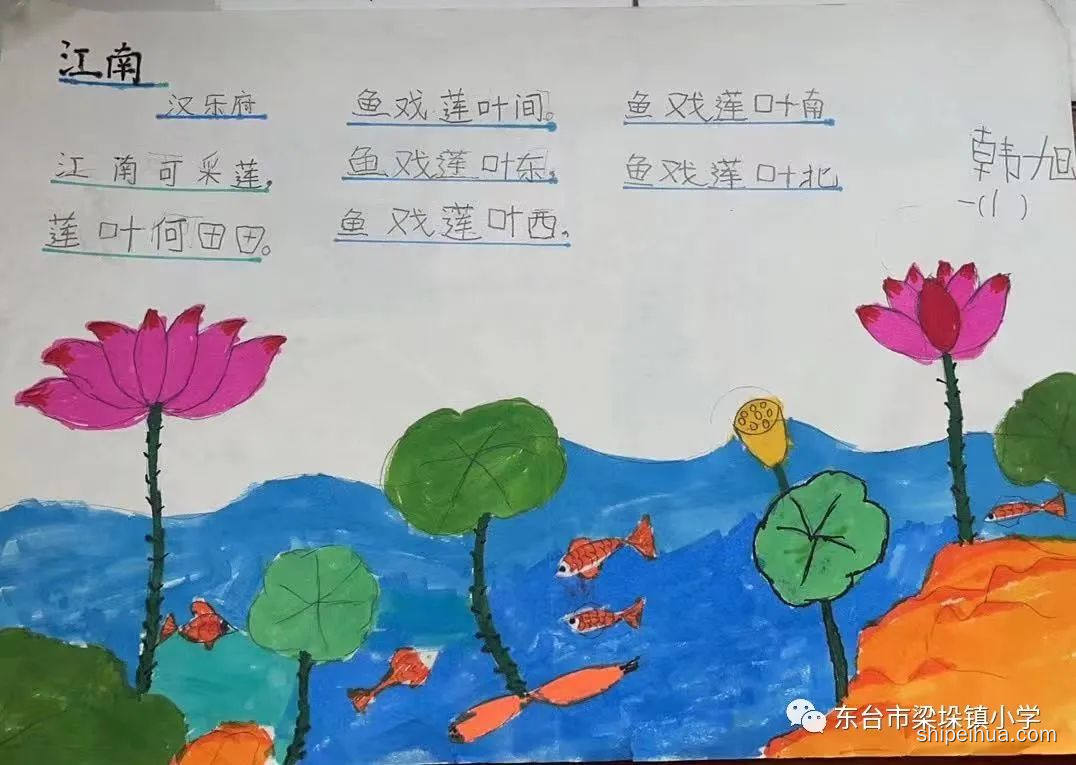 江南
汉乐府
江南可采莲,
莲叶何田田。
鱼戏莲叶间。
鱼戏莲叶东,
鱼戏莲叶西,
鱼戏莲叶南
鱼戏莲叶北
韩旭
一(1)
东台市梁垛镇小学
shipeihua.com